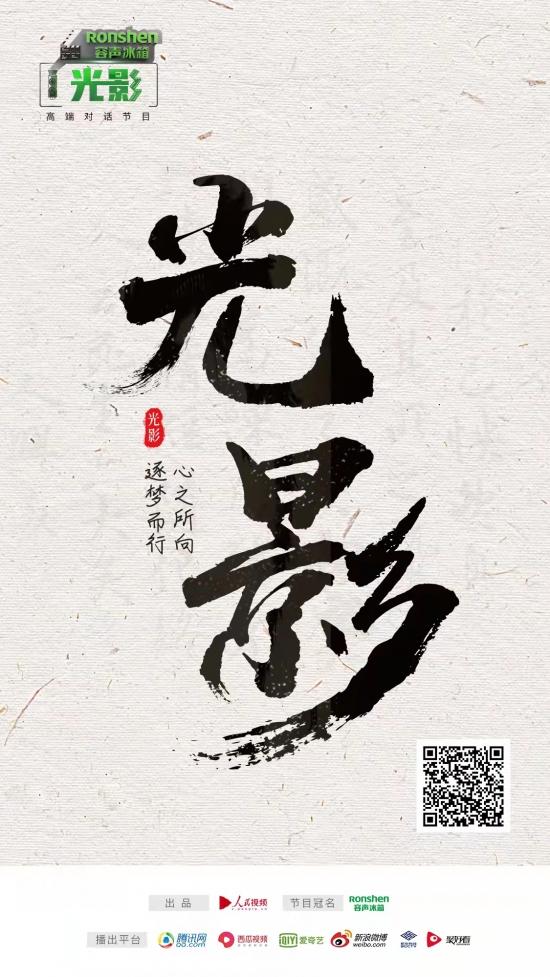 Ronshen
容声冰箱
光影
高端对话节目
光影
光影
心之所向
逐梦而行
出品
人民视频
节目冠名
Ronshen
容声冰箱
播出平台
腾讯网
QQ.com
西瓜视频
iQIYI 爱奇艺
新浪微博
weibo.com